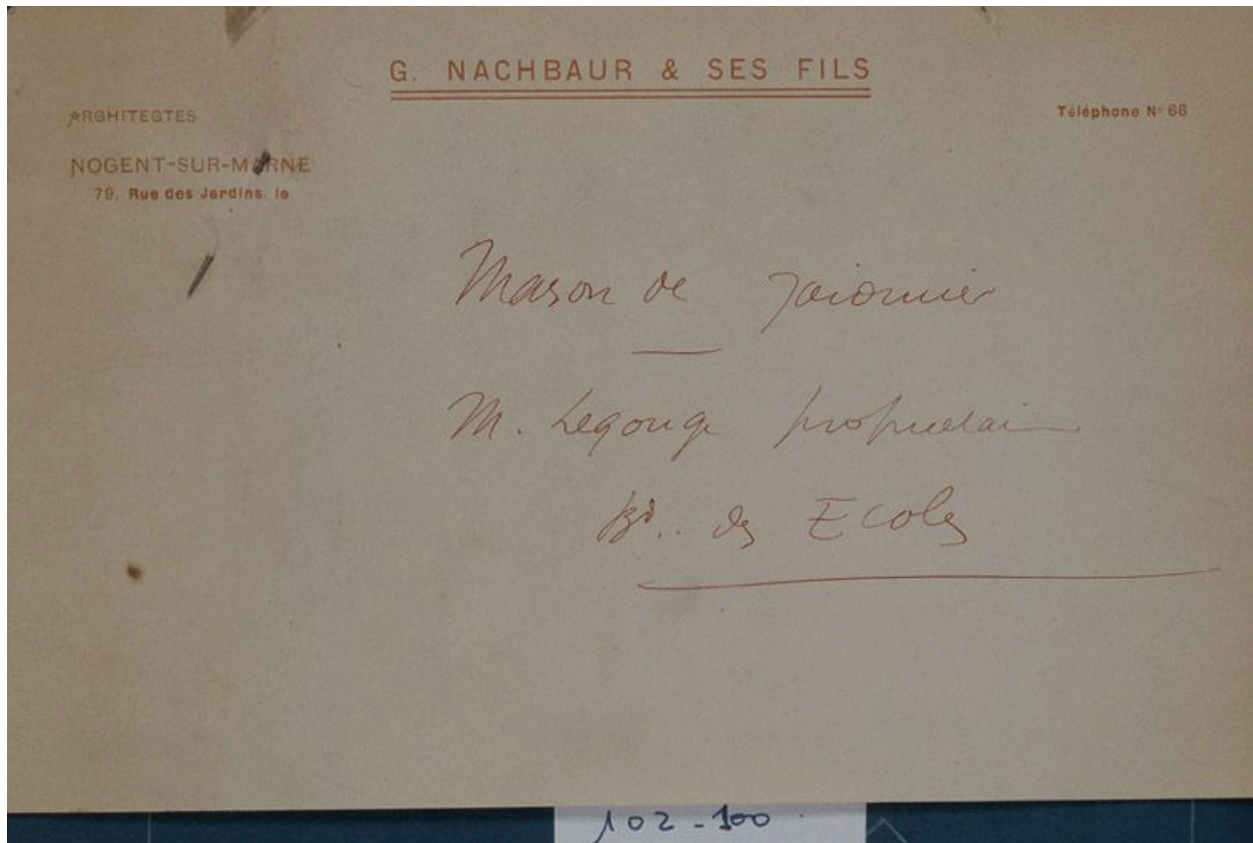 G. NACHBAUR & SES FILS
ARCHITECTES
Téléphone Nº 66
NOGENT-SUR-MARNE
79, Rue des Jardins, le
Maison de Jardinier
M. Legouge propriétaire
Bd. des Ecoles
102-100